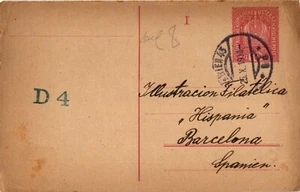 I
D 4
Illustracion Filatelica
"Hispania"
Barcelona
Spanien.